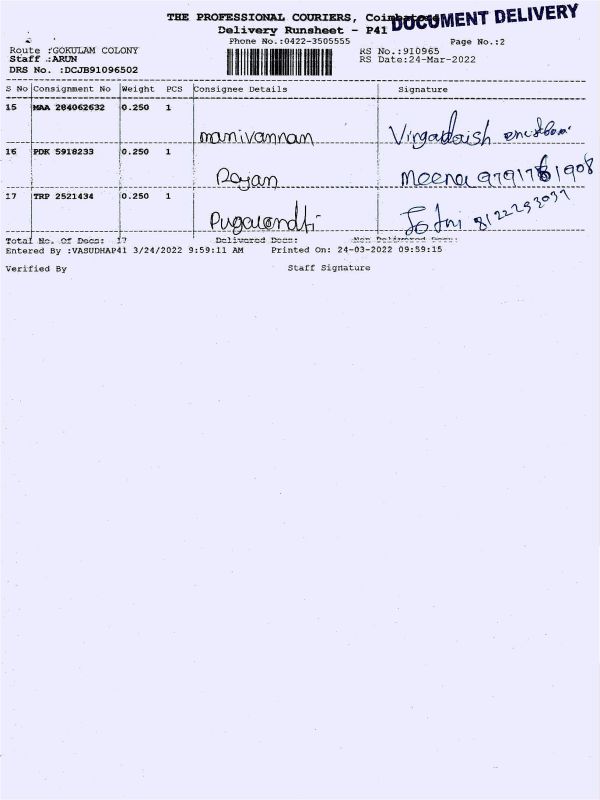 THE PROFESSIONAL COURIERS, Coimbatore
DOCUMENT DELIVERY
Delivery Runsheet - P41
Phone No.:0422-3505555 Page No.:2
Route :GOKULAM COLONY RS No.:910965
Staff :ARUN RS Date:24-Mar-2022
DRS No. :DCJB91096502
S No Consignment No Weight PCS Consignee Details Signature
15 MAA 284062632 0.250 1
manivannan
16 PDK 5918233 0.250 1
Rajan Meena
17 TRP 2521434 0.250 1
Total No. Of Docs: 17 Delivered Docs: Non Delivered Docs:
Entered By :VASUDHAP41 3/24/2022 9:59:11 AM Printed On: 24-03-2022 09:59:15
Verified By Staff Signature